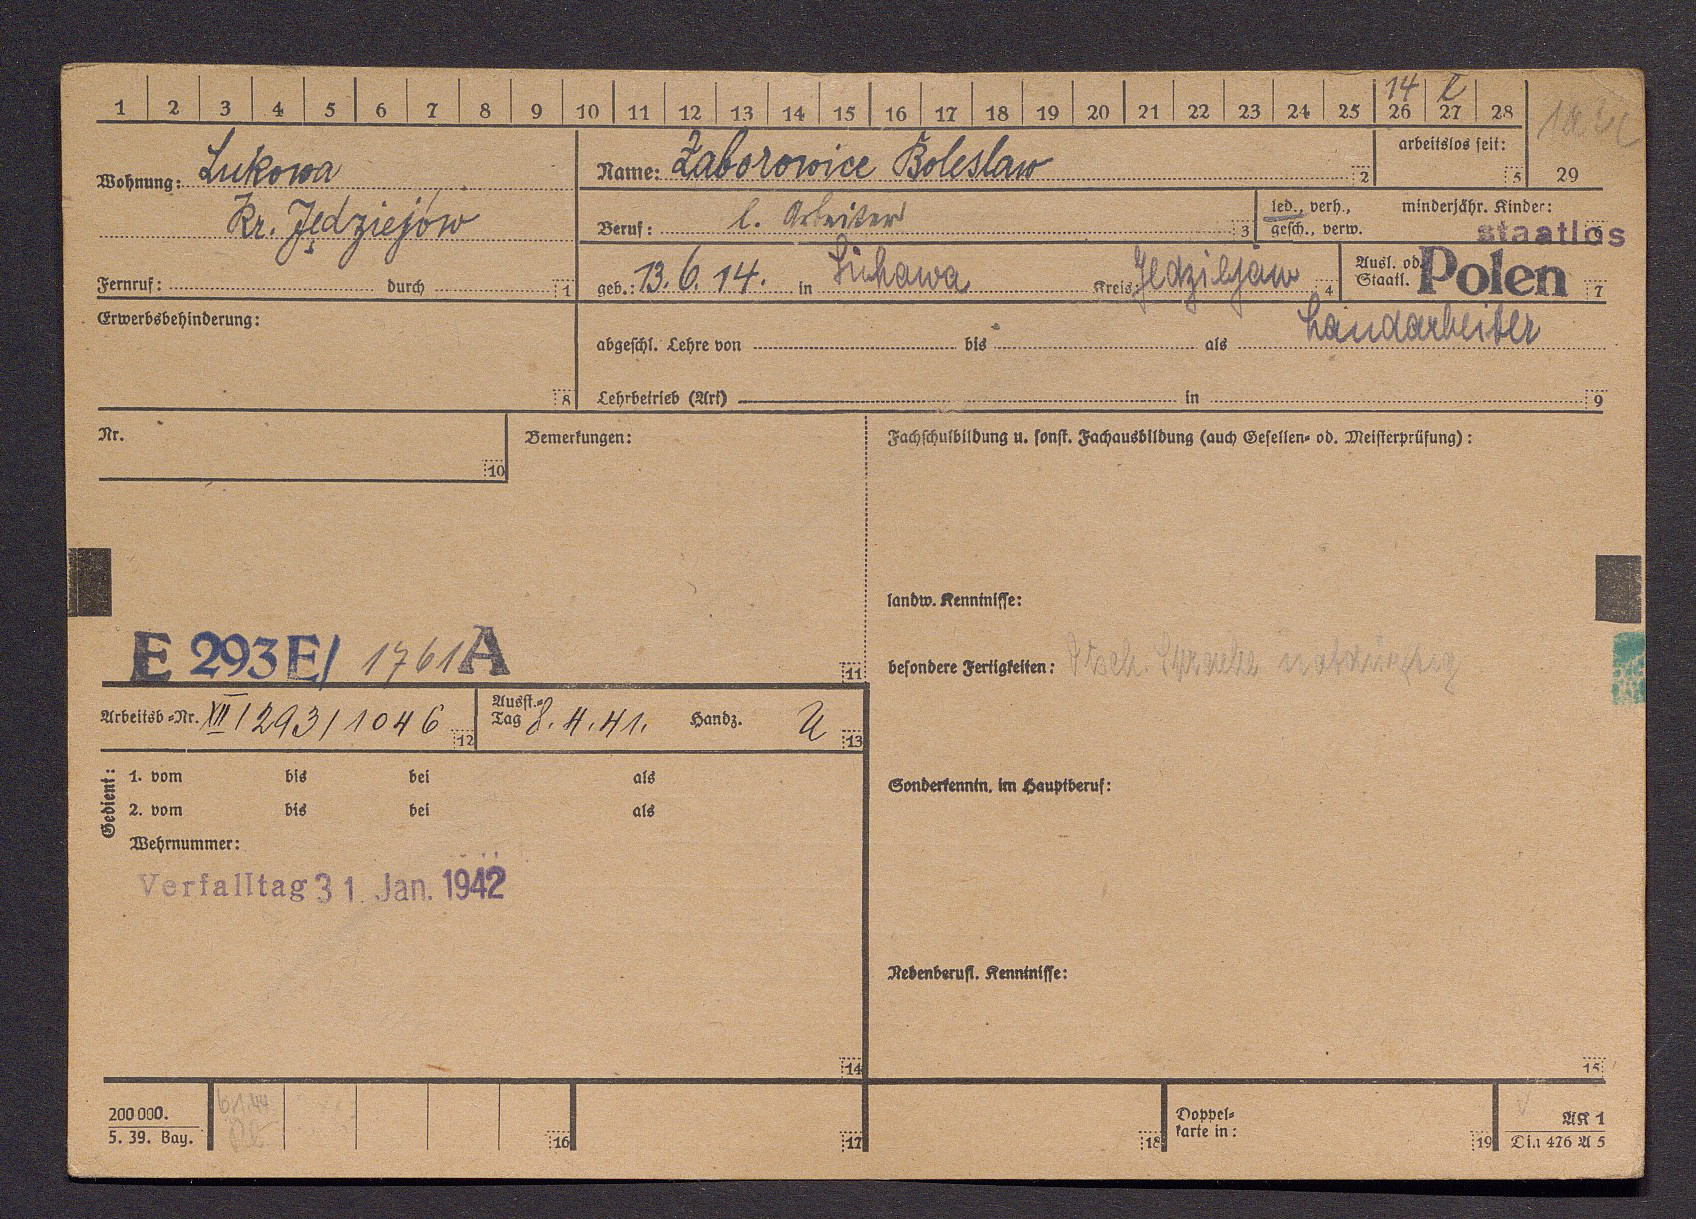 1 2 3 4 5 6 7 8 9 10 11 12 13 14 15 16 17 18 19 20 21 22 23 24 25 26 27 28
14 l
Wohnung: Lukowa
Kr. Jędziejów
Fernruf: durch 1
Name: Zaborowice Boleslaw 2
arbeitslos seit: 5
29
Beruf: l. Arbeiter 3
led., verh.,
gesch., verw.
minderjähr. Kinder:
staatlos
geb.: 13. 6. 14. in Lukawa Kreis: Jedziejaw 4
Ausl. od.
Staatl. Polen 7
Erwerbsbehinderung: 8
abgeschl. Lehre von bis als Landarbeiter
Lehrbetrieb (Art) in 9
Nr. 10
Bemerkungen:
Fachschulbildung u. sonst. Fachausbildung (auch Gesellen- od. Meisterprüfung):
landw. Kenntnisse:
E 293 E/ 1761 A 11
besondere Fertigkeiten: Dtsch. Sprache notdürftig
Arbeitsb.-Nr. XII/293/1046 12
Ausst.-
Tag 8. 4. 41. Handz. U 13
Gedient:
1. vom bis bei als
2. vom bis bei als
Wehrnummer:
Sonderkenntn. im Hauptberuf:
Verfalltag 31. Jan. 1942
Nebenberufl. Kenntnisse:
14
15
200 000.
5. 39. Bay.
6.1.44
16
17
18
Doppel-
karte in: 19
AK 1
Din 476 A 5